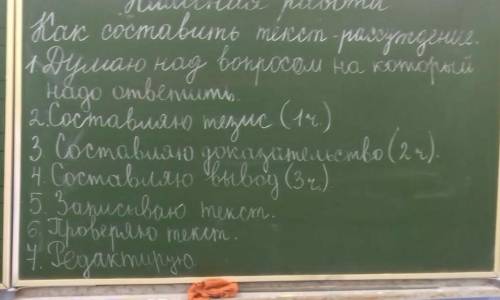 работа
Как составить текст-рассуждение.
1. Думаю над вопросом на который
надо ответить.
2. Составляю тезис (1ч.)
3. Составляю доказательство (2ч).
4. Составляю вывод (3ч.)
5. Записываю текст.
6. Проверяю текст.
7. Редактирую